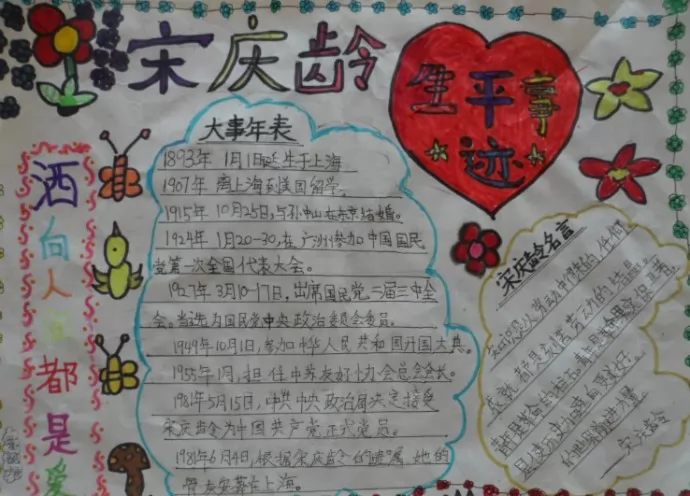 宋庆龄
生平事
迹
洒向人
都是爱
大事年表
1893年 1月1日诞生于上海
1907年 离上海到美国留学。
1915年 10月25日,与孙中山在东京结婚。
1924年 1月20-30,在广州参加中国国民
党第一次全国代表大会。
1927年 3月10-17日,出席国民党二届三中全
会。当选为国民党中央政治委员会委员。
1949年10月1日,参加中华人民共和国开国大典。
1955年1月,担任中苏友好协会总会会长。
1981年5月15日,中共中央政治局决定接受
宋庆龄为中国共产党正式党员。
1981年6月4日,根据宋庆龄的遗嘱,她的
骨灰安葬在上海。
宋庆龄名言
知识是从劳动中得来的
成就都是刻苦劳动的结晶。
——宋庆龄